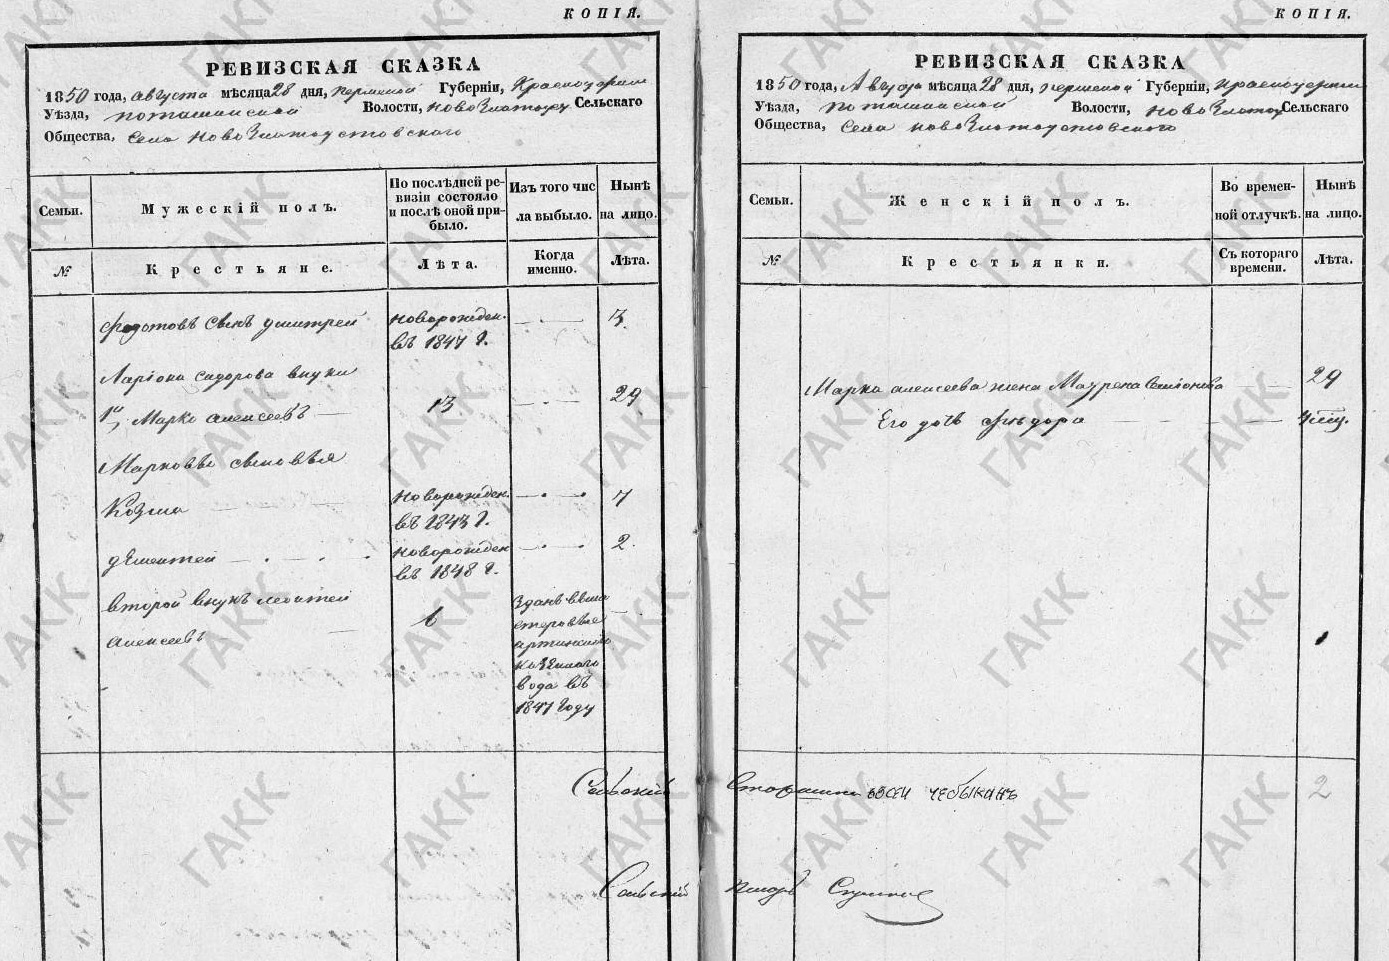 КОПІЯ.
РЕВИЗСКАЯ СКАЗКА
1850 года, августа мѣсяца 28 дня, пермской Губерніи, Красноуфим
Уѣзда, поташинской Волости, ново Златоу Сельскаго
Общества, Села ново Златоустовскаго
Семьи.
Мужескій полъ.
По послѣдней ре-
визіи состояло
и послѣ оной при-
было.
Изъ того чис
ла выбыло.
Нынѣ
на лицо.
№
Крестьяне.
Лѣта.
Когда
именно.
Лѣта.
Федотовъ сынъ дмитрей
новорожден.
въ 1847 г.
3
Ларіона сидорова внуки
1й Марко алексеевъ
13
29
Марковы сыновья
Козма
новорожден.
въ 1843 г.
7
дементей
новорожден
въ 1848 г.
2
второй внукъ леонтей
алексеевъ
6
артинскаго
казеннаго
вода въ
1847 году
КОПІЯ.
РЕВИЗСКАЯ СКАЗКА
1850 года, Августа мѣсяца 28 дня, пермской Губерніи, Красноуфим
Уѣзда, поташинской Волости, ново Златоу Сельскаго
Общества, Села ново Златоустовскаго
Семьи.
Женскій полъ.
Во времен-
ной отлучкѣ.
Нынѣ
на лицо.
№
Крестьянки.
Съ котораго
времени.
Лѣта.
Марка алексеева жена Маурена Семіонова
29
Его дочь Фекдора
Сельский Старшина ѣвсеи чебыкинъ
2
Сельский писарь
ГАКК